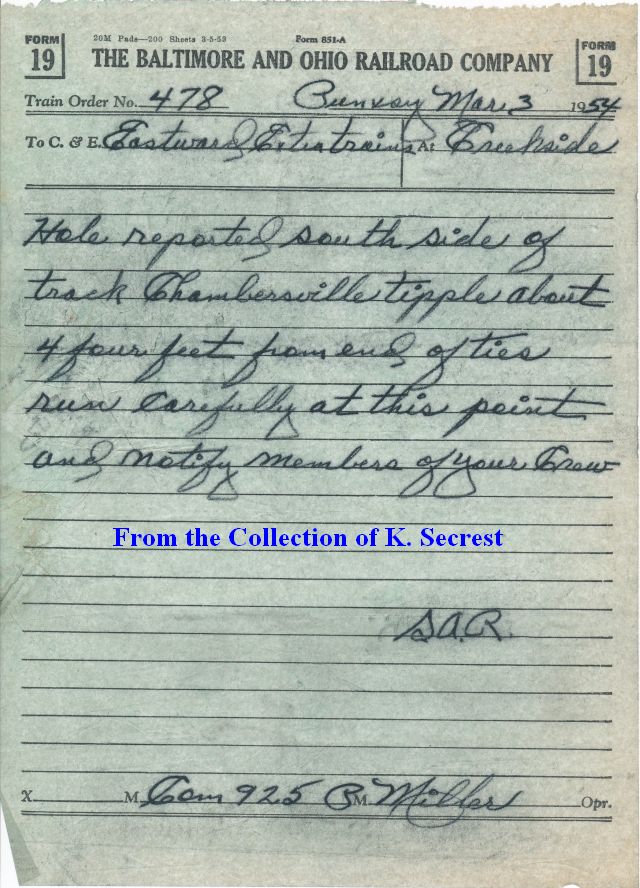 FORM 19
20M Pads—200 Sheets 3-5-53 Form 851-A
THE BALTIMORE AND OHIO RAILROAD COMPANY
FORM 19
Train Order No. 478 Punxsy Mar. 3 1954
To C. & E. Eastward Extra trains At Creekside
Hole reported south side of
track Chambersville tipple about
4 four feet from end of ties
run carefully at this point
and notify members of your Crew
From the Collection of K. Secrest
S.A.R.
X M. Com 925 P M. Miller Opr.